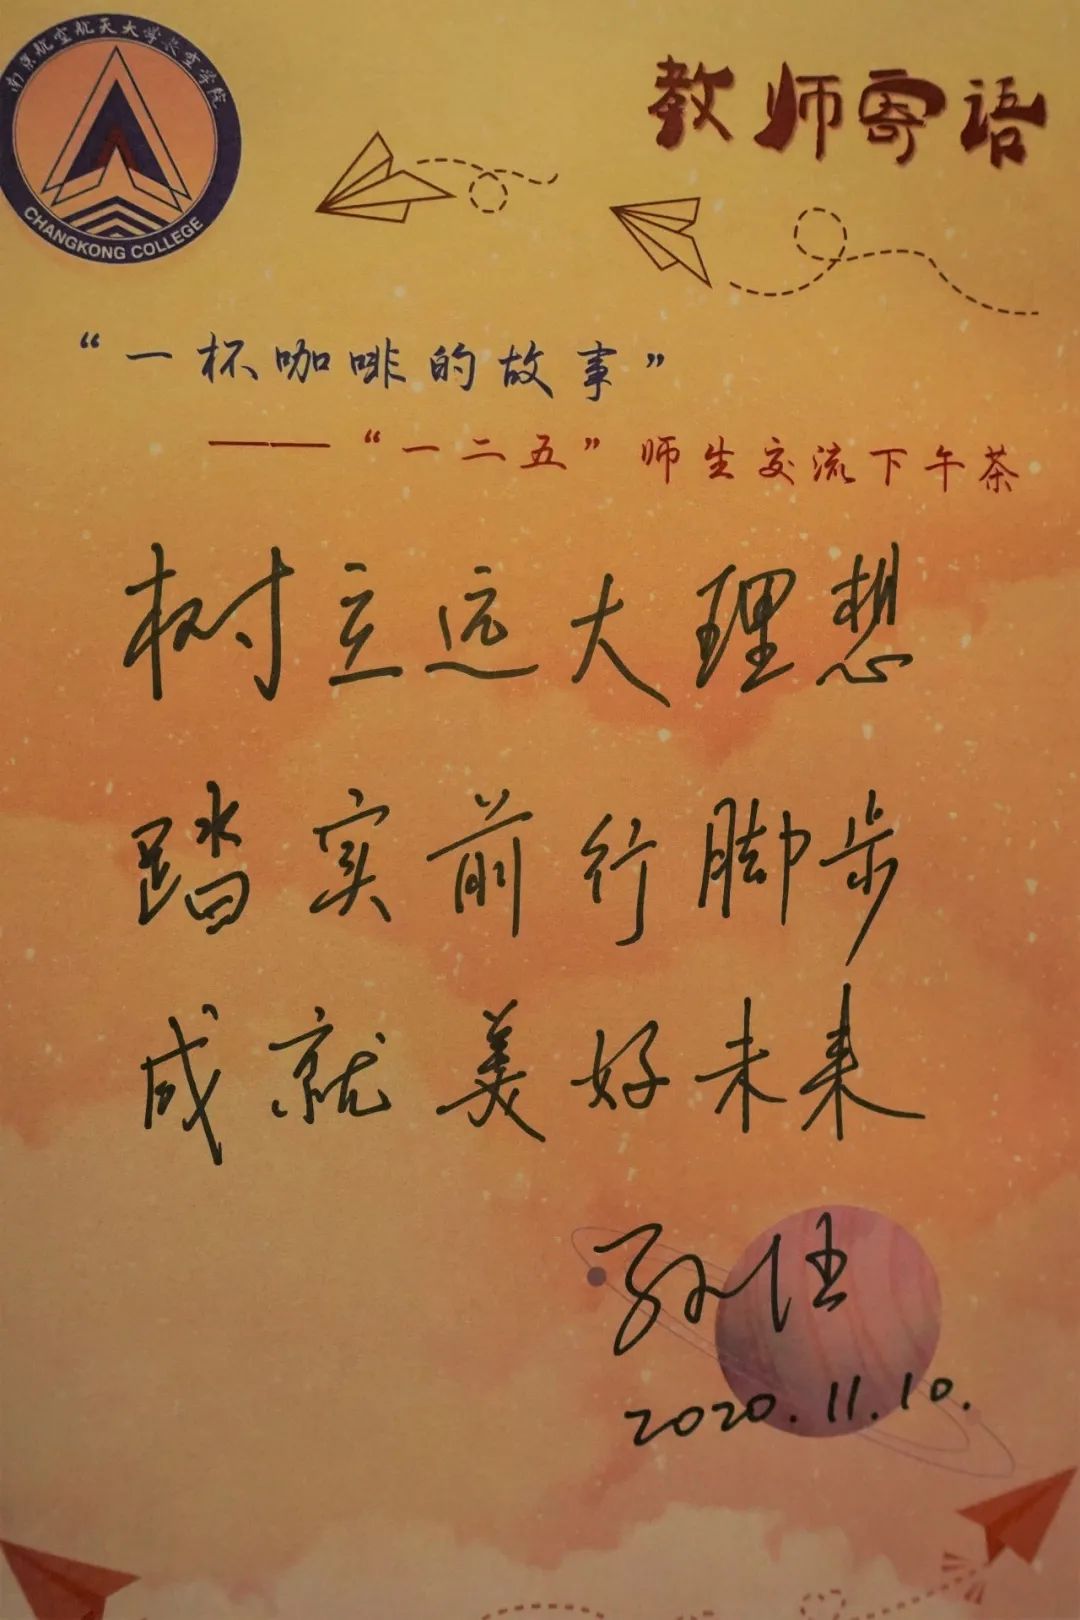 南京航空航天大学长空学院
CHANGKONG COLLEGE
教师寄语
“一杯咖啡的故事”
——“一二五”师生交流下午茶
树立远大理想
踏实前行脚步
成就美好未来
孙佳
2020.11.10.